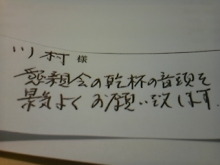 川村 様
懇親会の乾杯の音頭を
景気よくお願い致します